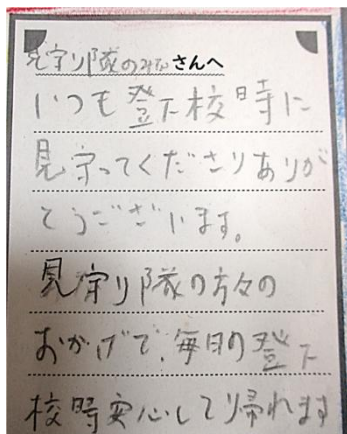 見守り隊のみなさんへ
いつも登下校時に
見守ってくださりありが
とうございます。
見守り隊の方々の
おかげで、毎日の登下
校時安心して帰れます